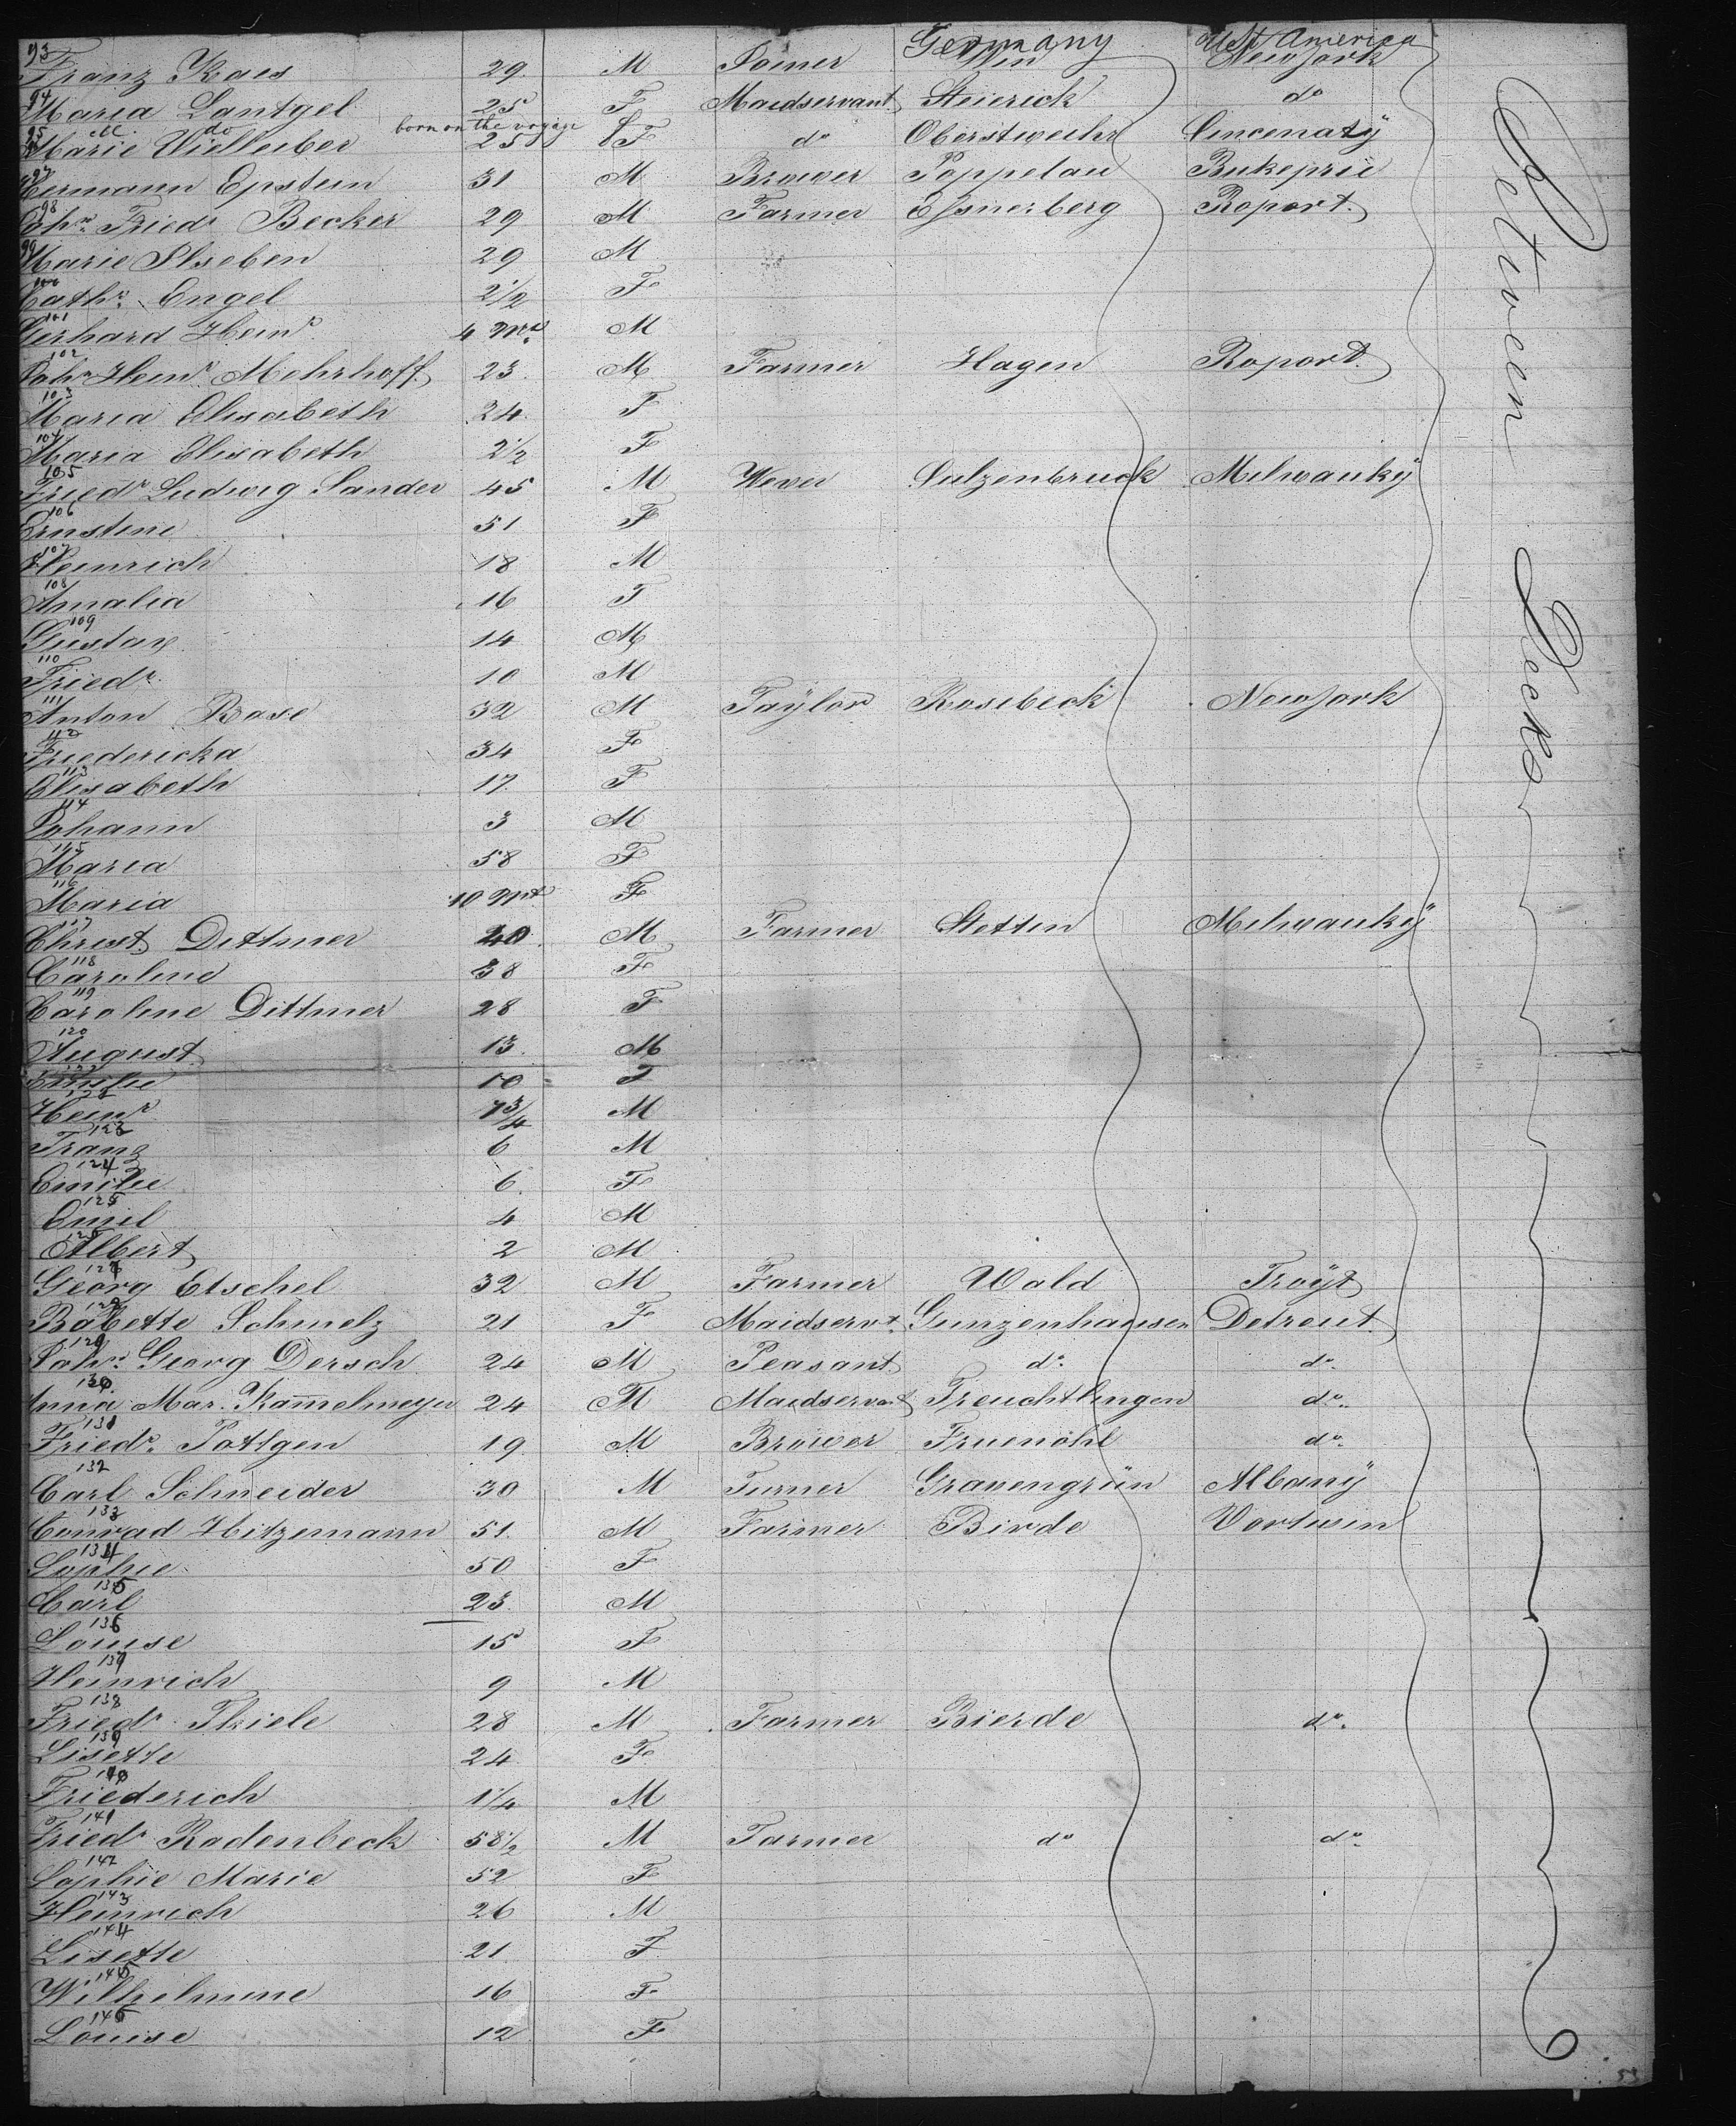 Germany U St America
93 Franz Kaes 29 M Joiner Wien New York
94 Maria Lantgel 25 F Maidservant Steierick do
95 do born on the voyage F
Marie Viellieber 25 F do Cincenaty
97 Hermann Epstein 31 M Brower Poppelau
98 John Friedr Becker 29 M Farmer Essnerberg Roport
99 Marie Ilseben 29 M
100 Cathr Engel 2 1/2 F
101 Gerhard Heinr 4 Mts M
102 John Heinr Mehrhoff 23 M Farmer Hagen Roport
103 Maria Elisabeth 24 F
104 Maria Elisabeth 2 1/2 F
105 Friedr Ludwig Sander 45 M Wever Sulzenbruck Milwauky
106 Ernstine 51 F
107 Heinrich 18 M
108 Amalia 16 F
109 Gustav 14 M
110 Friedr 10 M
111 Anton Base 32 M Taylor Rosebeck New York
112 Friedericka 34 F
113 Elisabeth 17 F
114 Johann 3 M
115 Maria 58 F
116 Maria 10 Mts F
117 Christ Dittmer 40 M Farmer Stettin Milwauky
118 Caroline 38 F
119 Caroline Dittmer 28 F
120 August 13 M
Emilie 10 F
122 Heinr 7 3/4 M
123 Franz 6 M
124 Emilie 6 F
125 Emil 4 M
126 Albert 2 M
127 Georg Etschel 32 M Farmer Wald Troyt
128 Babette Schmelz 21 F Maidservt Gunzenhausen Detreut
129 John Georg Dersch 24 M Peasant do do
130 Anna Mar. Kammelmeyer 24 M Maidservant Treuchtlingen do
131 Friedr Pottgen 19 M Brower Fruenohl do
132 Carl Schneider 30 M Turner Gravengrün Albany
133 Conrad Hitzemann 51 M Farmer Birde
134 Sophie 50 F
135 Carl 23 M
136 Louise 15 F
137 Heinrich 9 M
138 Friedr Thiele 28 M Farmer Bierde do
139 Lisette 24 F
140 Friederich 1 1/4 M
141 Friedr Radenbeck 58 1/2 M Farmer do do
142 Sophie Marie 52 F
143 Heinrich 26 M
144 Lisette 21 F
145 Wilhelmine 16 F
146 Louise 12 F
Between Decks